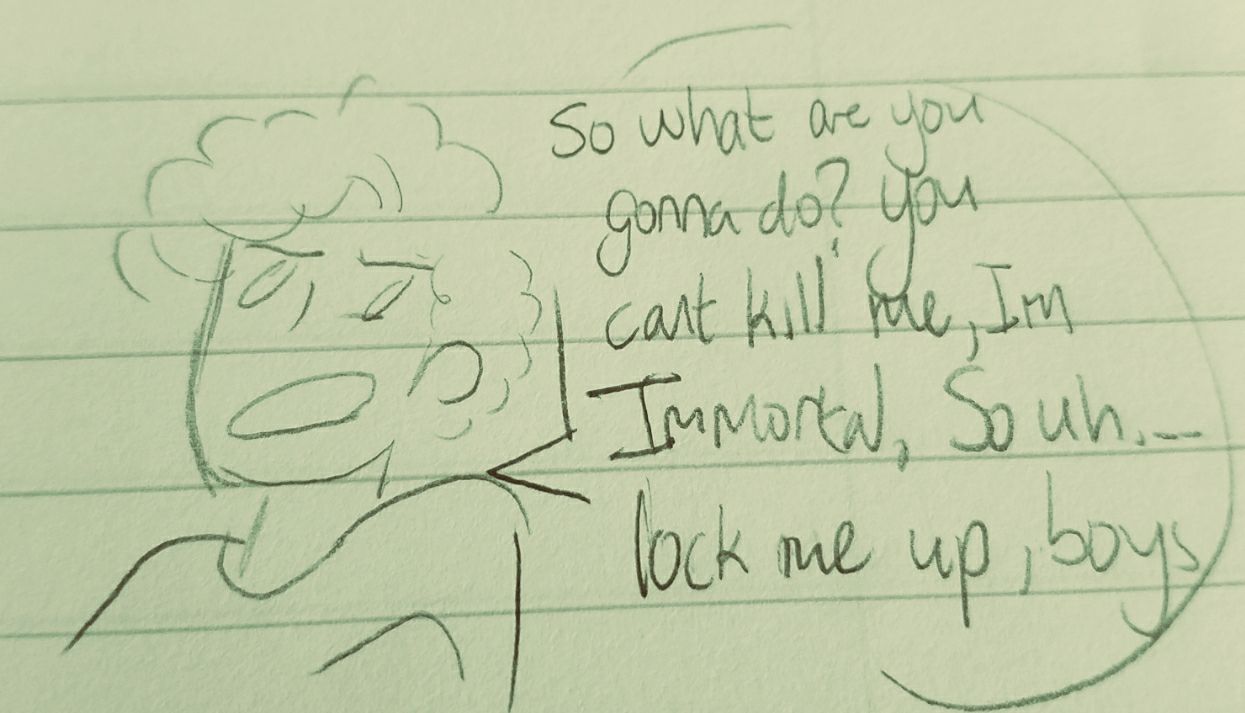 So what are you
gonna do? you
cant kill me, Im
Immortal, So uh...
lock me up, boys